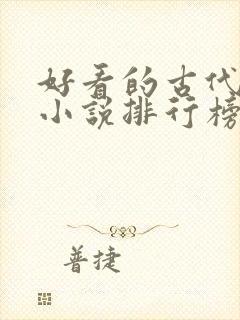 好看的古代
小说排行榜
普捷